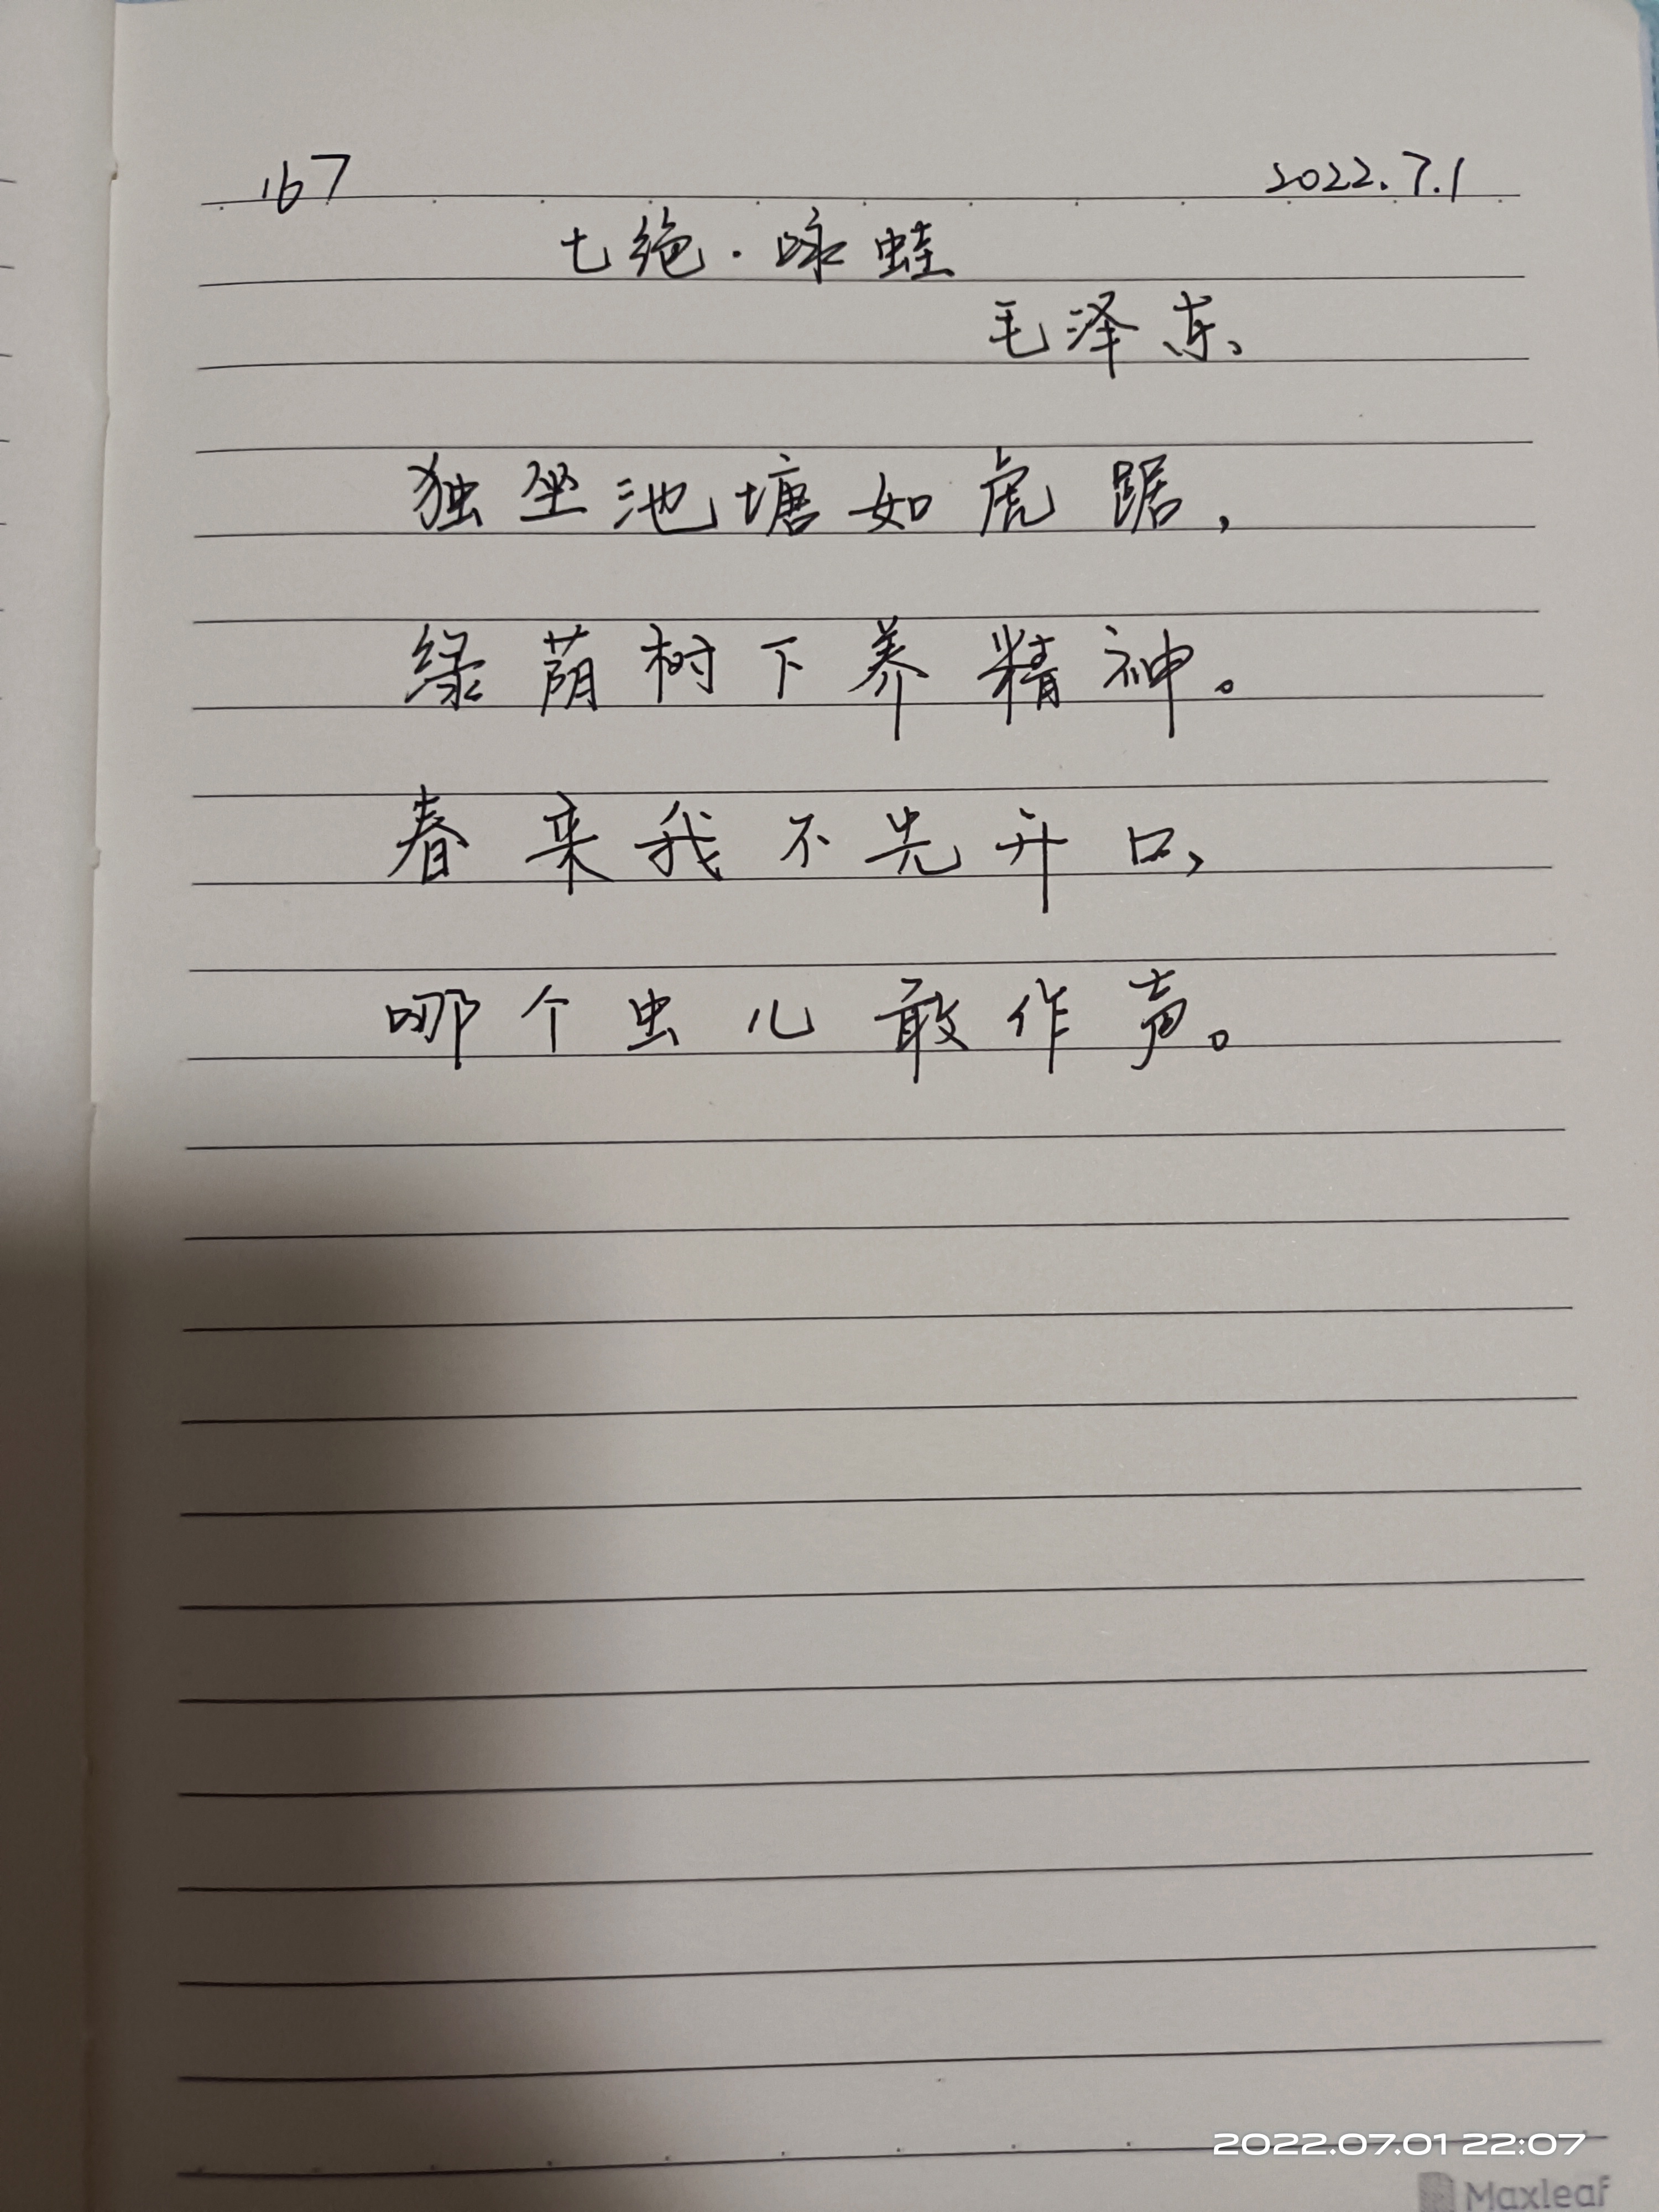 167 2022.7.1
七绝·咏蛙
毛泽东
独坐池塘如虎踞,
绿荫树下养精神。
春来我不先开口,
哪个虫儿敢作声。
2022.07.01 22:07
Maxleaf